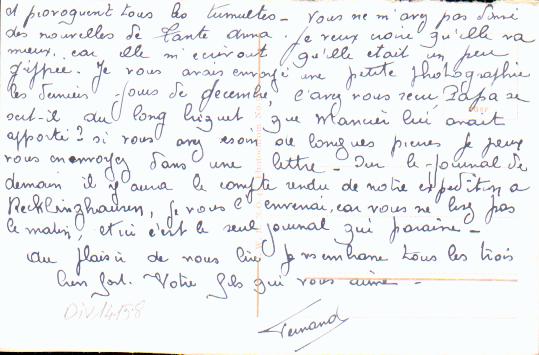 et provoquent tous les tumultes – Vous ne m'avez pas donné
des nouvelles de tante Anna. Je veux croire qu'elle va
mieux, car elle m'écrivait qu'elle était un peu
grippée. Je vous avais envoyé une petite photographie
les derniers jours de décembre, l'avez vous reçu, Papa se
sert-il du long briquet que Mancier lui avait
apporté? si vous avez besoin de longues pierres je peux
vous en envoyez dans une lettre – Sur le journal de
demain il y aura le compte rendu de notre expédition a
Recklinghausen, je vous l'enverrai, car vous ne lisez pas
le matin, et ici c'est le seul journal qui paraisse –
Au plaisir de vous lire je vous embrasse tous les trois
bien fort. Votre fils qui vous aime –
Fernand
Div 14758